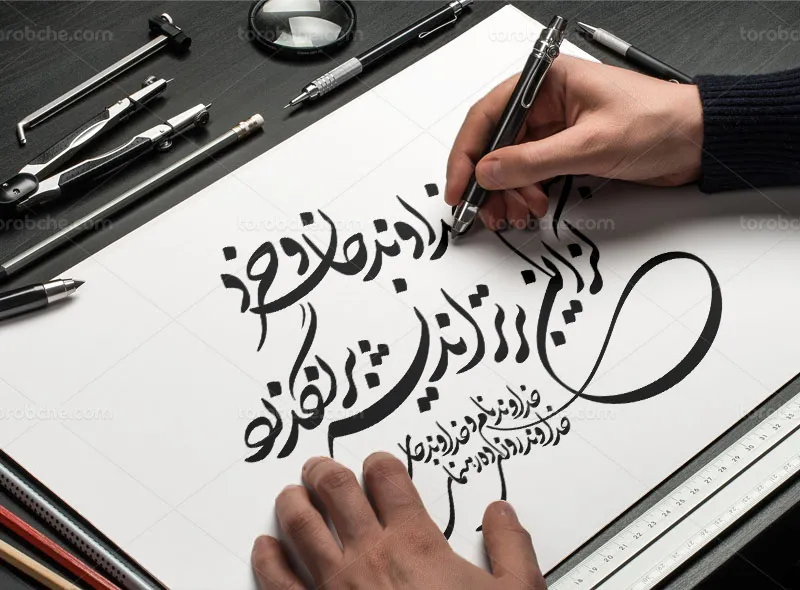 خداوند جان و خرد
کزین برتر اندیشه برنگذرد
خداوند نام و خداوند جای
خداوند روزی ده رهنمای
torobche.com